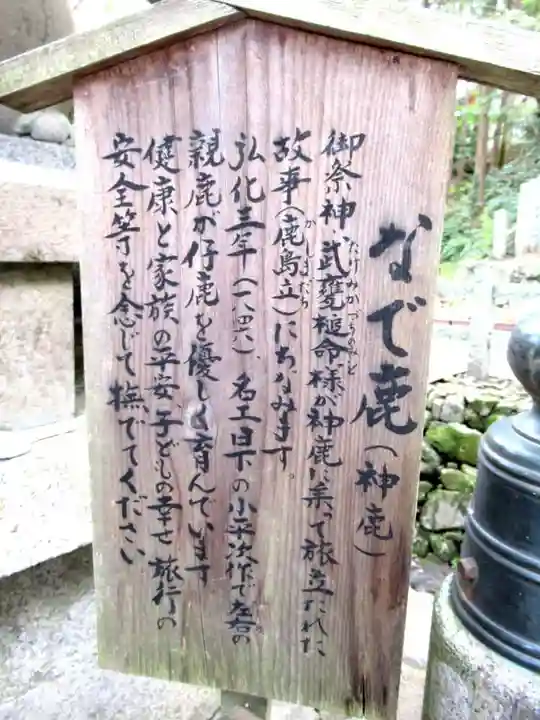 なで鹿(神鹿)
御祭神・武甕槌命様が神鹿に乗って旅立たれた
たけみかづちのみこと
故事(鹿島立)にちなみます。
かしまだち
弘化三年(一八四六)、名工日下の小平次作で左右の
親鹿が仔鹿を優しく育んでいます
健康と家族の平安、子どもの幸せ、旅行の
安全等を念じて撫でてください